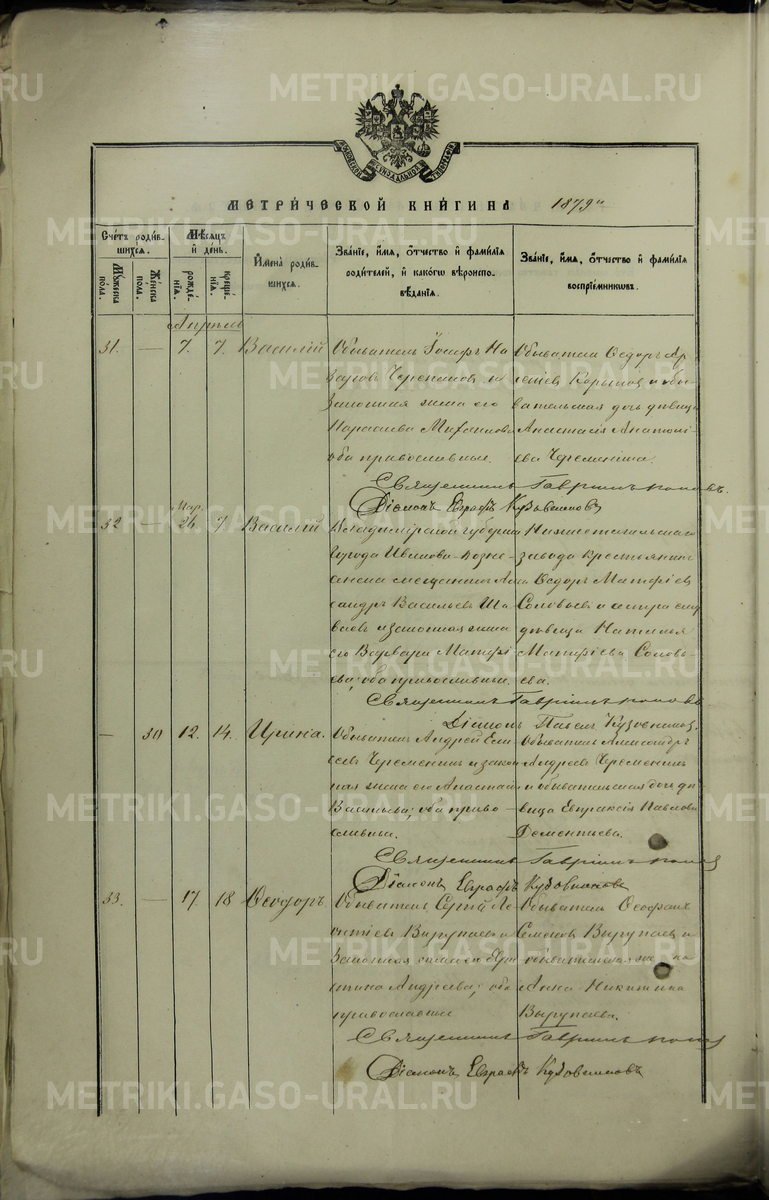 METRIKI.GASO-URAL.RU
МЕТРИ́ЧЕСКОЙ КНИ́ГИ НА 1879 й
Сче́тъ роди́в-
шихся.
Му́жеска
по́ла.
Же́нска
по́ла.
Мѣ́сяцъ
и҆ де́нь.
рожде́-
нїѧ.
креще́-
нїѧ.
И҆мена̀ роди́в-
шихся.
Зва́нїе, и҆́мѧ, ѻ҆́тчество и҆ фами́лїѧ
роди́телей, и҆ како́гѡ вѣроиспо-
вѣ́данїѧ.
Зва́нїе, и҆́мѧ, ѻ҆́тчество и҆ фами́лїѧ
воспрїе́мниковъ.
Апрѣль
31. — 7. 7. Василій
Обыватель Іосифъ На
законная жена его
Параскева Михаилова
оба православные.
Обыватель Ѳедоръ
вательская дочь дѣвица
Анастасія Анатолі
ева Черемнина.
Священникъ Гавріилъ Поповъ.
Діаконъ Евграфъ
Мар.
32 — 24 7. Василій
Владимірской губерніи
города Иванова-Возне-
сенска мещанинъ Алек
сандръ Васильевъ
и законная жена
его Варвара Матѳі
ева; оба православные.
Нижнетагильскаго
завода крестьянинъ
Ѳедоръ Матѳіевъ
Соловьевъ и сестра ему
дѣвица Наталья
Матѳіева Соловь-
ева.
Священникъ Гавріилъ Поповъ
Діаконъ Павелъ
— 30 12. 14. Ирина.
Обыватель Андрей Ели
сеевъ Черемнинъ и закон
ная жена его Анастасія
Васильева; оба право-
славные.
Обыватель Александръ
Андреевъ Черемнинъ
и обывательская дочь дѣ-
вица Евпраксія Павлова
Дементьева.
Священникъ Гавріилъ Поповъ
Діаконъ Евграфъ
33. — 17. 18 Ѳеодоръ
Обыватель Сергій Ле
онтіевъ Вырупаевъ и
законная жена его Хри
стина Андреева; оба
православные
Обыватель Ѳеофанъ
Семеновъ Вырупаевъ и
обывательская жена
Анна Никитина
Вырупаева.
Священникъ Гавріилъ Поповъ
Діаконъ Евграфъ